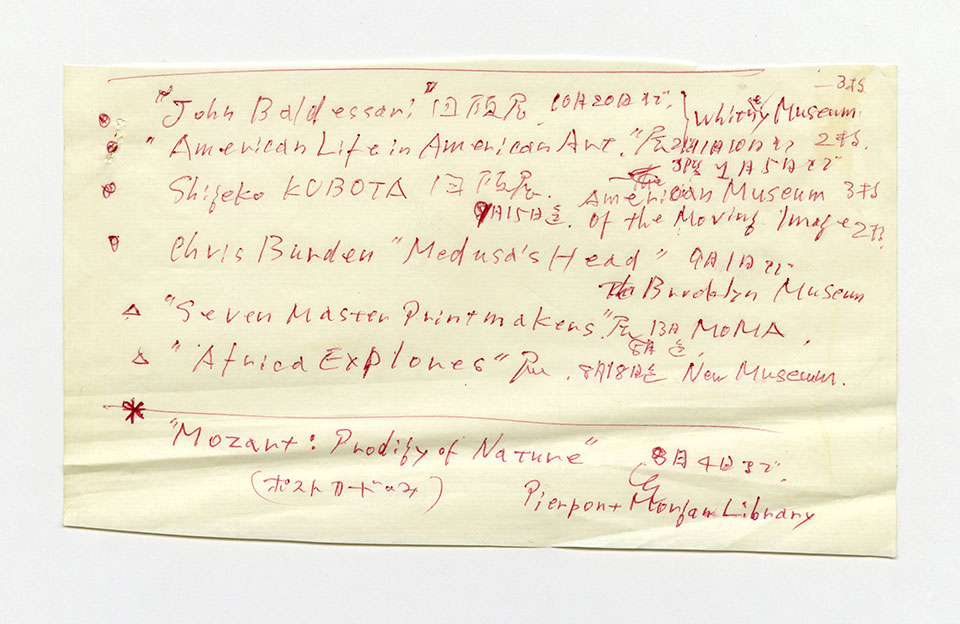 3枚
"John Baldessari" 回顧展 10月20日まで. Whitney Museum
"American Life in American Art." 展 11月10日まで 2枚.
月5日まで
Shigeko KUBOTA 回顧展. American Museum 3枚
9月15日迄. Of the Moving Image 2枚
Chris Burden "Medusa's Head" 9月1日まで
The Brooklyn Museum
"Seven Master Printmakers" 展 13日 MoMA.
8月 迄
"Africa Explores" 展. 8月18日迄 New Museum.
"Mozart: Prodigy of Nature" 8月4日まで.
(ポストカードのみ) Pierpont Morgan Library